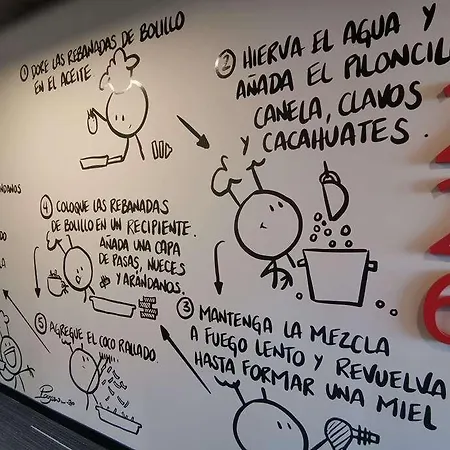 ① DORE LAS REBANADAS DE BOLILLO
EN EL ACEITE
② HIERVA EL AGUA Y
AÑADA EL PILONCIL
CANELA, CLAVOS
Y CACAHUATES.
③ MANTENGA LA MEZCLA
A FUEGO LENTO Y REVUELVA
HASTA FORMAR UNA MIEL
④ COLOQUE LAS REBANADAS
DE BOLILLO EN UN RECIPIENTE.
AÑADA UNA CAPA
DE PASAS, NUECES
Y ARÁNDANOS.
⑤ AGREGUE EL COCO RALLADO.
NDANOS